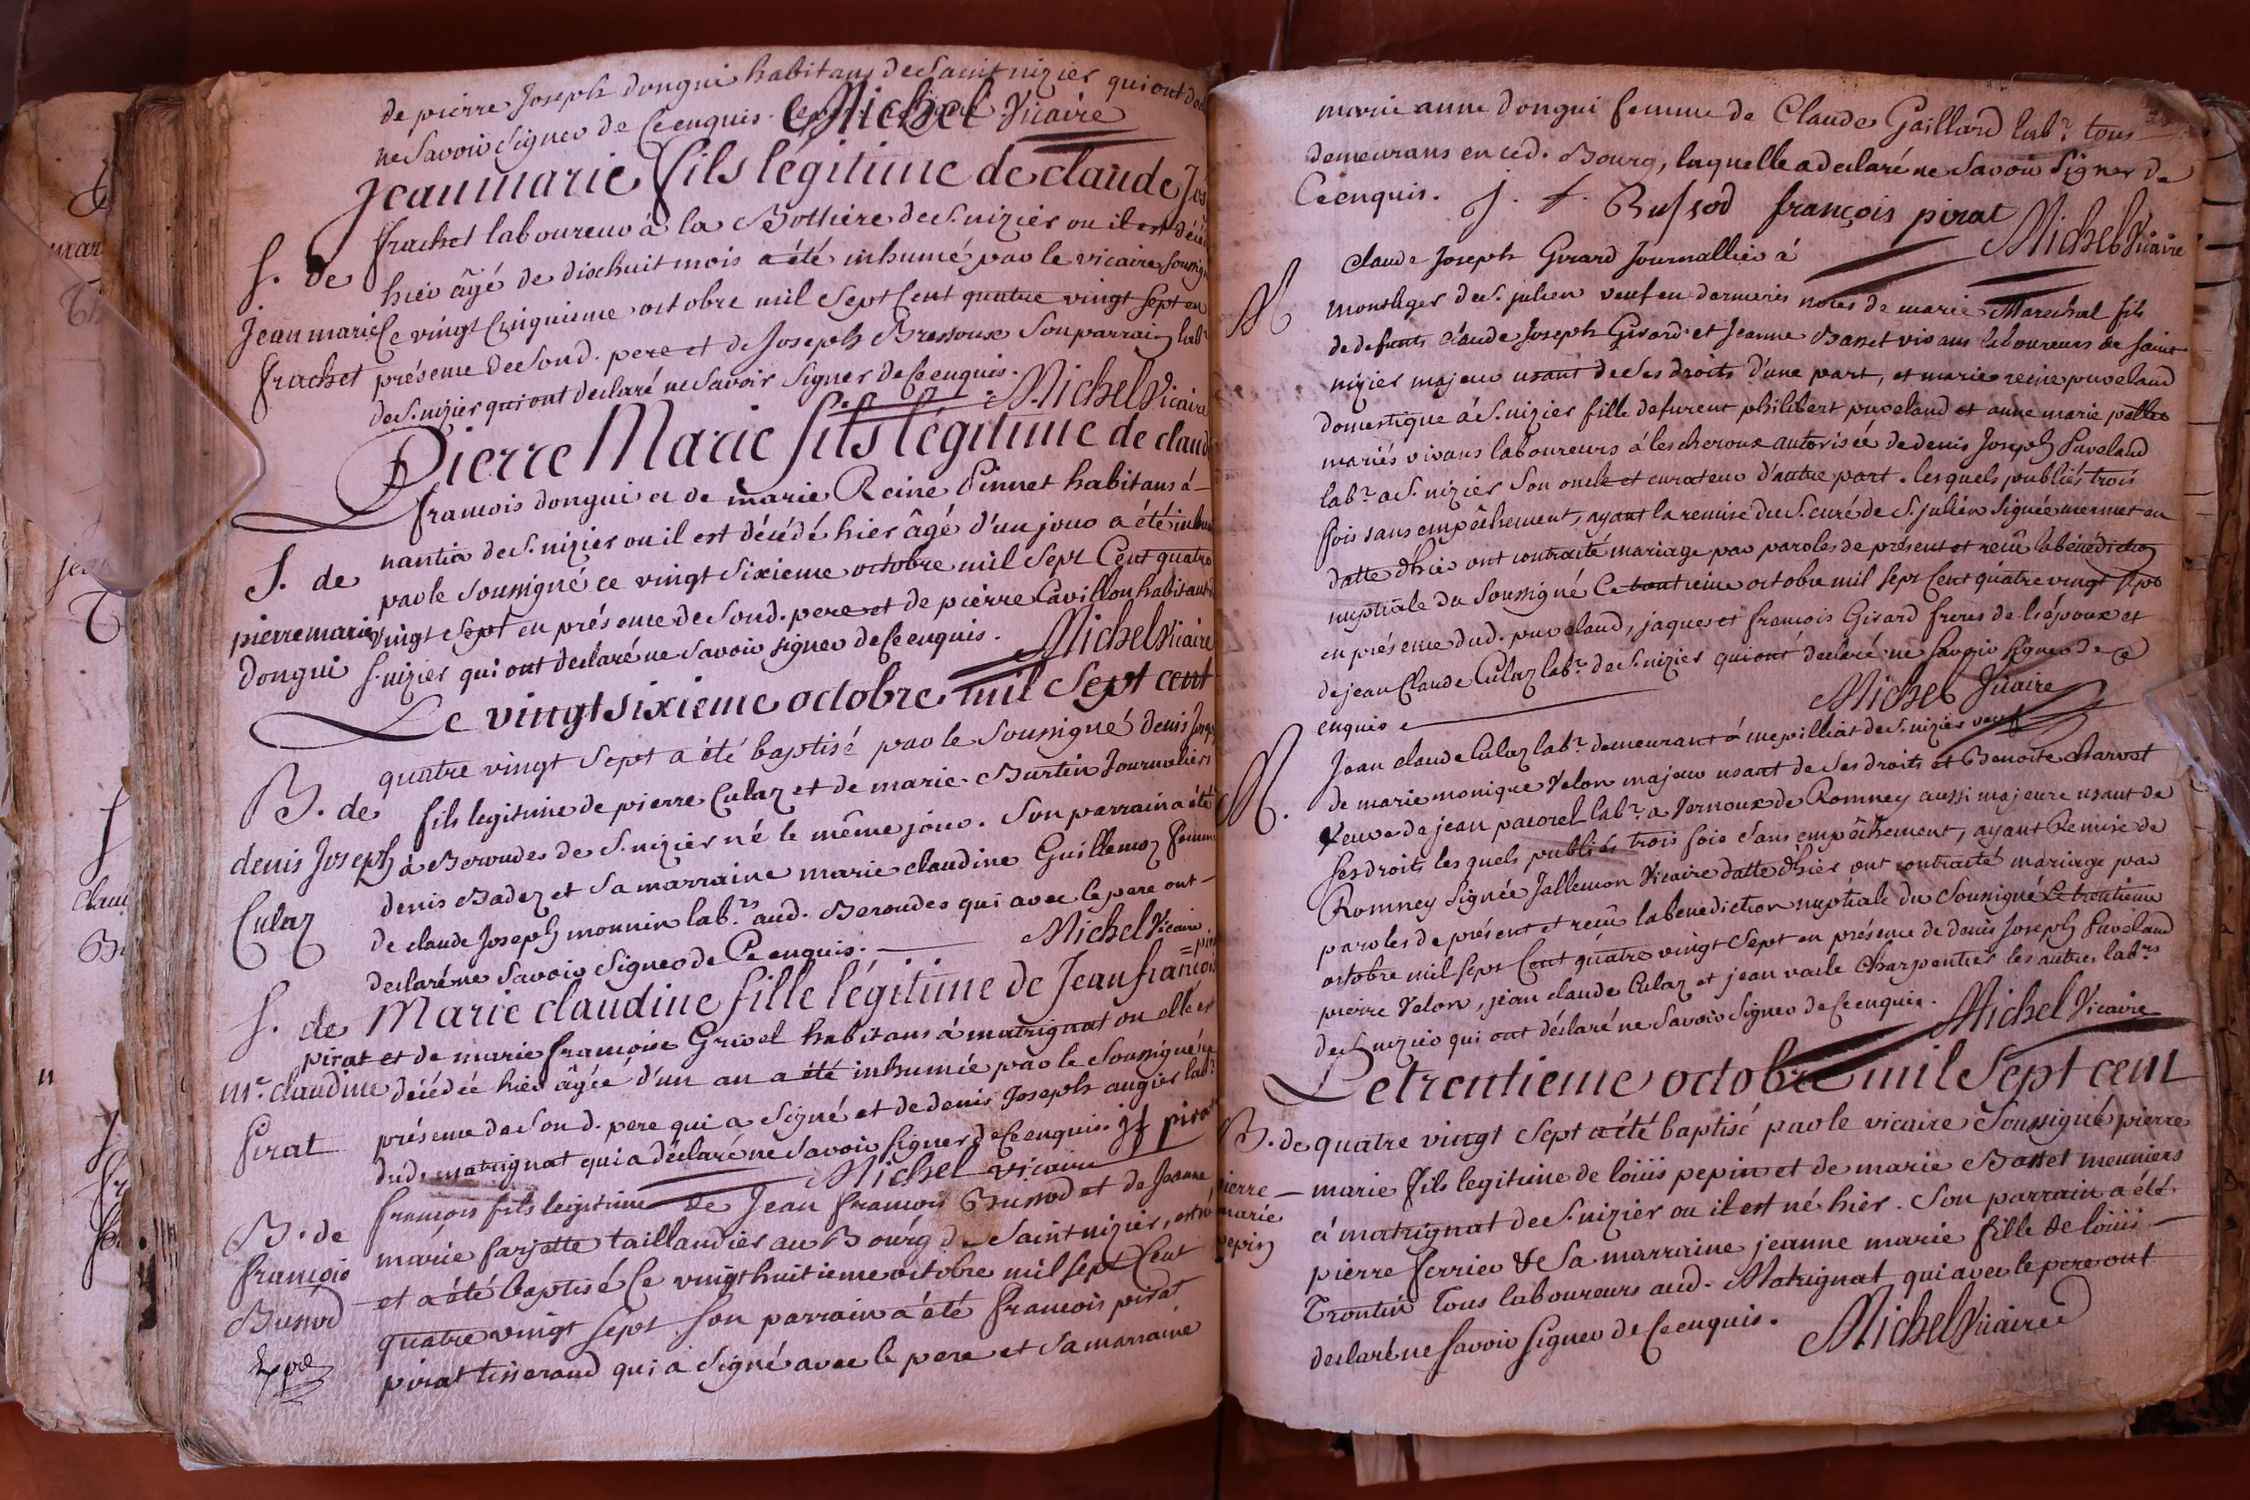 de pierre Joseph dongui habitans de Saint nizier qui ont
ne Savoir Signer de Ce enquis. Michel Vicaire
Jean marie fils légitime de claude
S. de
Jean marie
frachet
frachet laboureur à la Bottiere de S. nizier ou il est
hier âgé de dixhuit mois a été inhumé par le vicaire
Ce vingt Cinquieme octobre mil Sept Cent quatre vingt Sept en
présence de Sond. pere et de Joseph Bressoux Son parrain lab.r
de S. nizier qui ont declaré ne Savoir Signer de Ce enquis.
Michel Vicaire
Pierre Marie fils légitime de
S. de
pierre marie
Dongui
francois dongui et de marie Reine Pinnet habitans à
nantia de S. nizier ou il est décédé hier âgé d'un jour a été
par le Sousigné ce vingt Sixieme octobre mil Sept Cent quatre
vingt Sept en présence de Sond. pere et de pierre Cavillon
S. nizier qui ont declaré ne Savoir Signer de Ce enquis.
Michel Vicaire
Le vingt sixieme octobre mil Sept cent
B. de
denis Joseph
Culaz
quatre vingt Sept a été baptisé par le Sousigné denis
fils legitime de pierre Culaz et de marie Burtin Journaliers
à Beroudes de S. nizier né le même jour. Son parrain a été
denis Badez et Sa marraine marie claudine Guillemoz femme
de claude Joseph monnin lab.rs aud. Beroudes qui avec le pere ont
declaré ne Savoir Signer de Ce enquis.
Michel Vicaire
S. de
m.e claudine
Pirat
Marie claudine fille légitime de Jean francois
pirat et de marie francoise Grivel habitans à matrignat ou elle est
décédée hier âgée d'un an a été inhumée par le Sousigné
présence de Son d. pere qui a Signé et de denis Joseph augier lab.r
dud. matrignat qui a déclaré ne Savoir Signer de Ce enquis. jf pirat
Michel vicaire
B. de
francois
Bussod
francois fils legitime de Jean francois Bussod et de Jeanne
marie farjette taillandier au Bourg de Saint nizier,
et a été baptisé Ce vingt huitieme octobre mil Sept Cent
quatre vingt Sept Son parrain a été francois pirat
pirat tisserand qui a Signé avec le pere et Sa marraine
marie anne dongui femme de Claude Gaillard lab.r tous
demeurans en ced. Bourg, laquelle a declaré ne Savoir Signer de
Ce enquis. j. f. Bussod françois pirat
Michel Vicaire
M
claude Joseph Girard Journallier à
monsleger de S. julien veuf en dernieres noces de marie Marechal fils
de defunts claude Joseph Girard et Jeanne Basset vivans laboureurs de Saint
nizier majeur usant de Ses droits d'une part, et marie reine puveland
domestique à S. nizier fille de furent philibert puveland et anne marie
mariés vivans laboureurs à lescheroux autorisée de denis Joseph Puveland
lab.r a S. nizier Son oncle et curateur d'autre part. lesquels publiés trois
fois sans empêchement, ayant la remise du S. curé de S. julien Signée mermet en
datte d'hier ont contracté mariage par paroles de présent et reçu la bénédiction
nuptiale du Sousigné Ce trentieme octobre mil Sept Cent quatre vingt Sept
en présence dud. puveland, jaques et francois Girard freres de l'époux et
de jean Claude Culaz lab.r de S. nizier qui ont declaré ne Savoir Signer de Ce
enquis
Michel Vicaire
M.
Jean claude Culaz lab.r demeurant à mepilliat de S. nizier veuf
de marie monique Velon majeur usant de Ses droits et Benoite charvet
veuve de jean pacorel lab.r a Vernoux de Romney aussi majeure usant de
Ses droits lesquels publiés trois fois Sans empêchement, ayant Remise de
Romney Signée Jallemon Vicaire datte d'hier ont contracté mariage par
paroles de présent et reçu la benediction nuptiale du Sousigné Ce trentieme
octobre mil Sept Cent quatre vingt Sept en présence de denis Joseph Puveland
pierre Velon, jean claude Culaz et jean vacle Charpentier les autres lab.rs
de S. nizier qui ont déclaré ne Savoir Signer de Ce enquis.
Michel Vicaire
Le trentieme octobre mil Sept cent
B. de
pierre
marie
pepin
quatre vingt Sept a été baptisé par le vicaire Sousigné pierre
marie fils legitime de loüis pepin et de marie Basset meuniers
à matrignat de S. nizier ou il est né hier. Son parrain a été
pierre ferrier & Sa marraine jeanne marie fille de loüis
Trontin tous laboureurs aud. Matrignat qui avec le pere ont
declaré ne Savoir Signer de Ce enquis.
Michel Vicaire